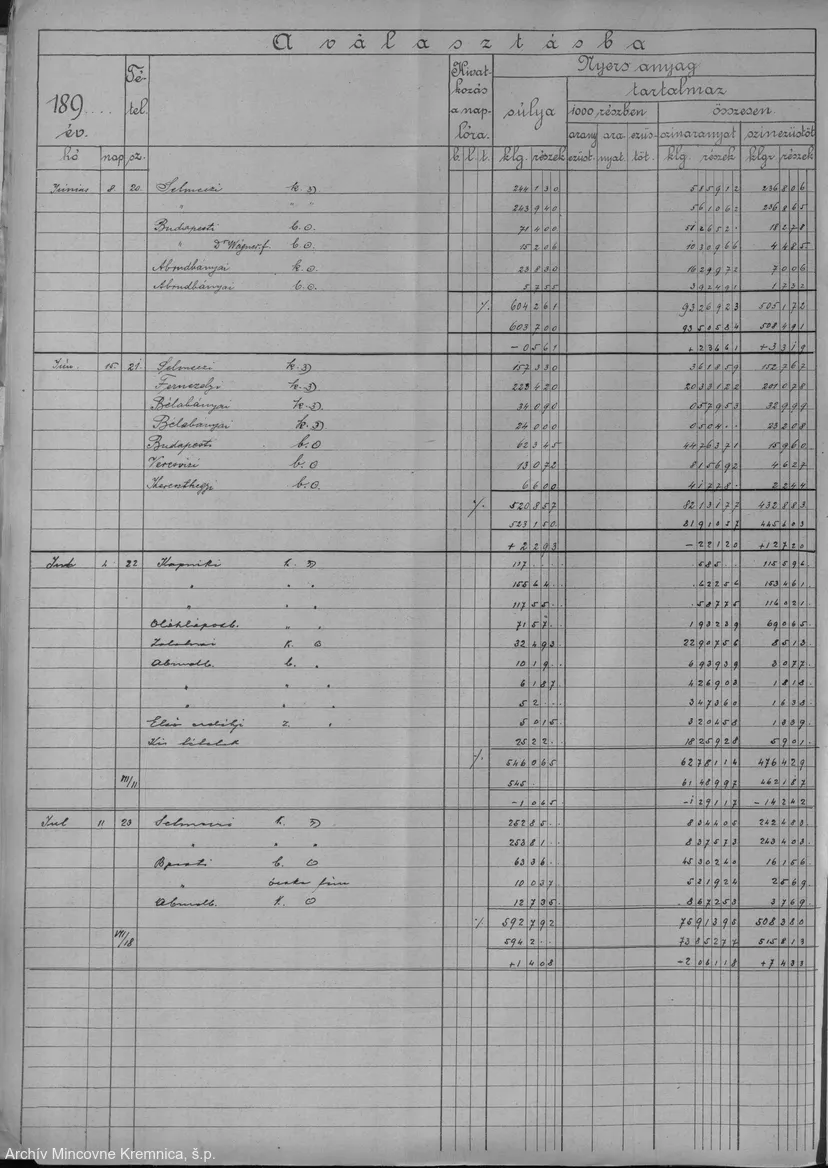 A választásba
189.... év.
Tétel.
Hivatkozás a naplóra.
Nyers anyag
súlya
tartalmaz
1000 részben
összesen
arany ezüst.
ara nyat.
ezüstöt.
színaranyat
színezüstöt
hó nap sz. b. l. t. klg. részek klg. részek klgr részek
Június 8. 20. Selmeczi k. 244 130 515912 236806
" " " 243 940 561062 236865
Budapesti b. 71 400 512652 18278
" Dr Wágner f. b. 15 206 1030966 4485
Abrudbányai k. 23 830 1629972 7006
Abrudbányai b. 5 755 392491 1732
%. 604 261 9326923 505172
603 700 9350584 508491
- 0 561 + 23661 + 3319
Jún. 15. 21. Selmeczi k. 157 330 361859 152767
Fernezelyi k. 223 420 2033122 201078
Bélabányai k. 34 090 057953 32999
Bélabányai k. 24 000 0504 23208
Budapesti b. 62 345 4476371 15960
Veresvizi b. 13 072 815692 4627
Kereszthegyi b. 6 600 41778 2244
%. 520 857 8213177 432883
523 150 8191057 445603
+ 2 293 - 22120 + 12720
22 Kapniki k. 117 585 115596
" " " 155 64 62256 153461
" " " 117 55 58775 116021
Oláhláposb. " " 71 57 193239 69065
Zalatnai k. 32 493 2290756 8513
Abrudb. b. 10 19 693939 3077
" " " 6 187 426903 1818
" " " 52 347360 1638
Első erdélyi " 5 015 320458 1339
25 22 1825928 5901
%. 546 065 6278114 476429
VII/11 545 6148997 462187
- 1 065 - 129117 - 14242
Jul 11 23 Selmeczi k. 252 85 834405 242483
" " " 253 81 837573 243403
Bpesti b. 63 36 4530240 16156
" 10 037 521924 2569
Abrudb. k. 12 735 867253 3769
%. 592 792 7591395 508380
VII/18 594 2 7385277 515813
+ 1 408 - 206118 + 7433
Archív Mincovne Kremnica, š.p.